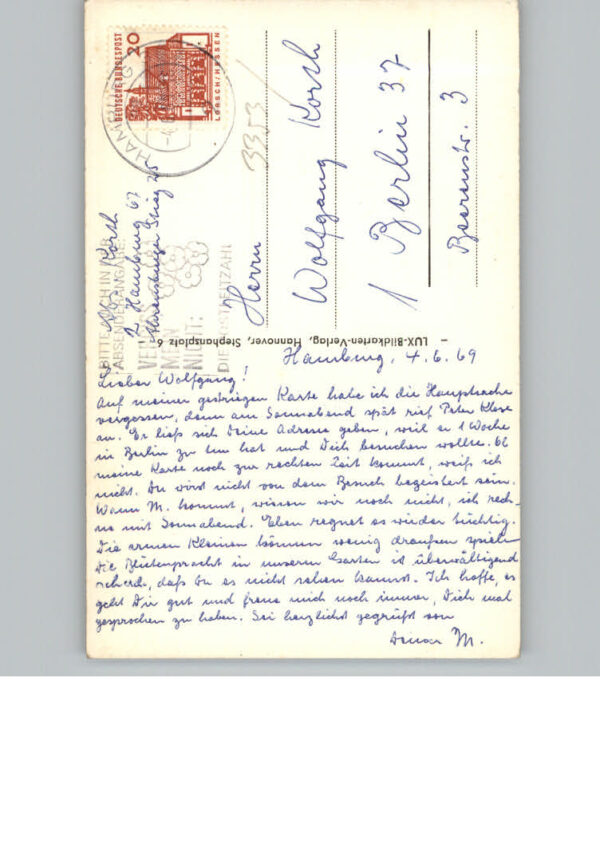 DEUTSCHE BUNDESPOST
20
LORSCH/HESSEN
HAMBURG
3353
Korth
2 Hamburg 67
BITTE AUCH IN DER
ABSENDERANGABE:
MEIN
NICHT:
DIE POSTLEITZAHL
Herrn
Wolfgang Korth
1 Berlin 37
Beerenstr. 3
– LUX-Bildkarten-Verlag, Hannover, Stephansplatz 6
Hamburg, 4.6.69
Lieber Wolfgang!
Auf meiner gestrigen Karte habe ich die Hauptsache
vergessen, denn am Sonnabend spät rief Peter Klose
an. Er ließ sich Deine Adresse geben, weil er 1 Woche
in Berlin zu tun hat und Dich besuchen wollte. Ob
meine Karte noch zur rechten Zeit kommt, weiß ich
nicht. Du wirst nicht von dem Besuch begeistert sein.
Wann M. kommt, wissen wir noch nicht, ich rech-
ne mit Sonnabend. Eben regnet es wieder tüchtig.
Die armen Kleinen können wenig draußen spielen
Die Blütenpracht in unserm Garten ist überwältigend
schade, daß Du es nicht sehen kannst. Ich hoffe, es
geht Dir gut und freue mich noch immer, Dich mal
gesprochen zu haben. Sei herzlichst gegrüßt von
Deiner M.